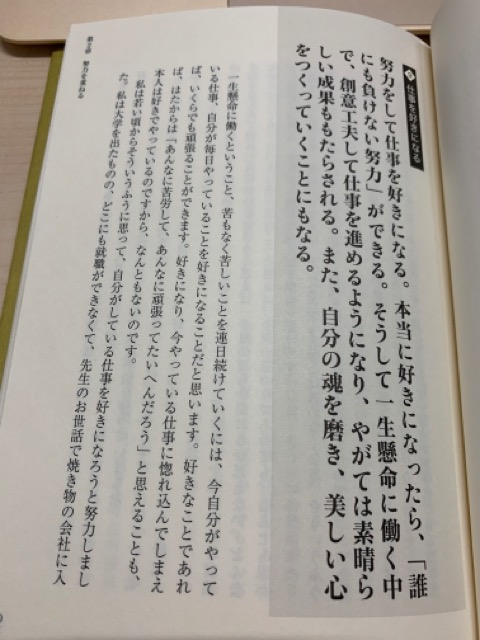 仕事を好きになる
努力をして仕事を好きになる。本当に好きになったら、「誰
にも負けない努力」ができる。そうして一生懸命に働く中
で、創意工夫して仕事を進めるようになり、やがては素晴ら
しい成果ももたらされる。また、自分の魂を磨き、美しい心
をつくっていくことにもなる。
一生懸命に働くということ、苦もなく苦しいことを連日続けていくには、今自分がやって
いる仕事、自分が毎日やっていることを好きになることだと思います。好きなことであれ
ば、いくらでも頑張ることができます。好きになり、今やっている仕事に惚れ込んでしまえ
ば、はたからは「あんなに苦労して、あんなに頑張ってたいへんだろう」と思えることも、
本人は好きでやっているのですから、なんともないのです。
私は若い頃からそういうふうに思って、自分がしている仕事を好きになろうと努力しまし
た。私は大学を出たものの、どこにも就職ができなくて、先生のお世話で焼き物の会社に入
努力を重ねる